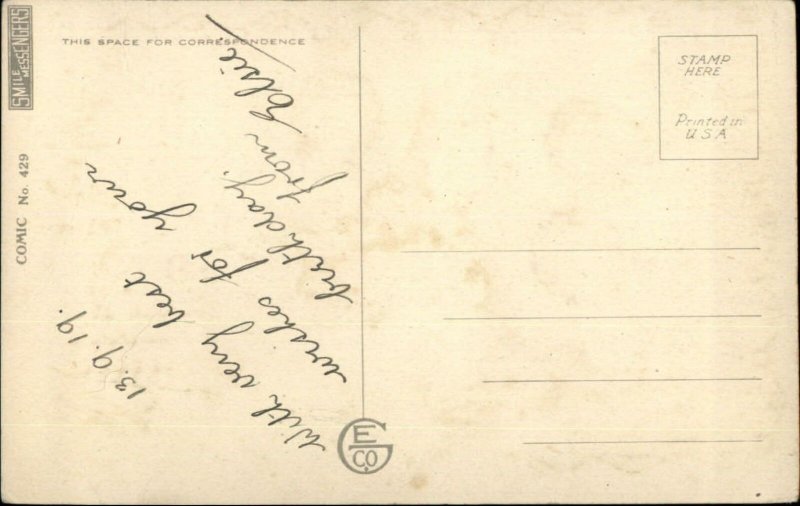 SMILE MESSENGERS
COMIC No. 429
THIS SPACE FOR CORRESPONDENCE
13.9.19.
With very best
wishes for your
birthday.
from Elsie
E G CO
STAMP
HERE
Printed in
U S A